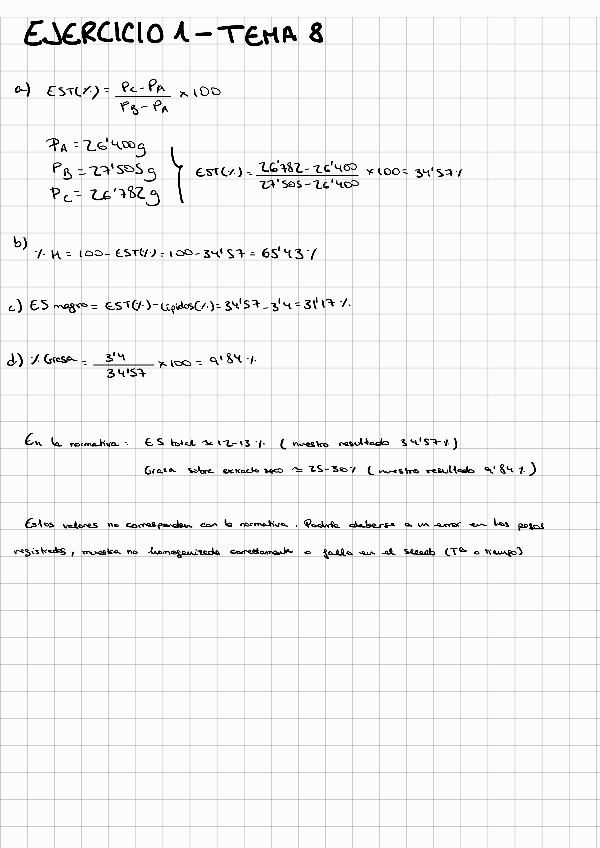 EJERCICIO 1 - TEMA 8
a) EST(%) = (Pc - PA) / (PB - PA) x 100
PA = 26'400g
PB = 27'505g
Pc = 26'782g
EST(%) = (26'782 - 26'400) / (27'505 - 26'400) x 100 = 34'57%
b) % H = 100 - EST(%) = 100 - 34'57 = 65'43%
c) ES magro = EST(%) - Lípidos(%) = 34'57 - 3'4 = 31'17%.
d) % Grasa = 3'4 / 34'57 x 100 = 9'84%.
En la normativa: ES total ≈ 12-13%. (nuestro resultado 34'57%)
Grasa sobre extracto seco ≈ 25-30% (nuestro resultado 9'84%)
Estos valores no corresponden con la normativa. Podría deberse a un error en los pesos
registrados, muestra no homogenizada correctamente o fallo en el secado (Tª o tiempo)